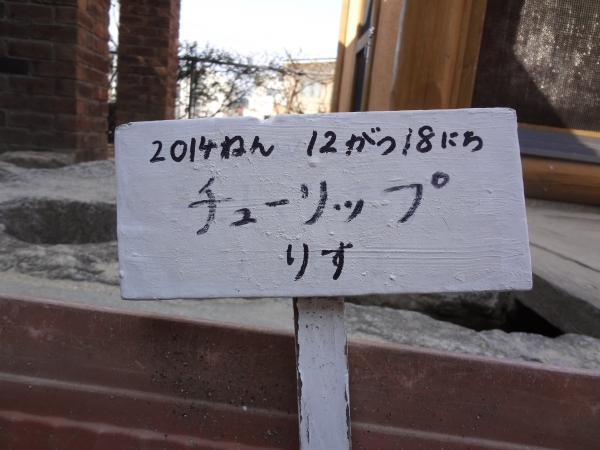 2014ねん 12がつ18にち
チューリップ
りす